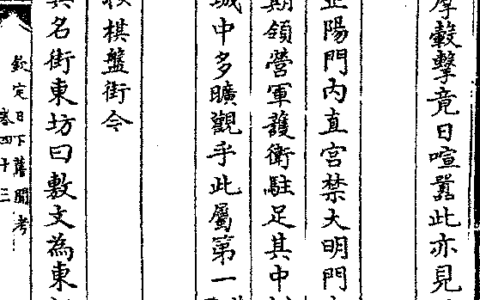 摩轂擊竟日喧囂此亦見
正陽門内直宫禁大明門
期領營軍護衛駐足其中
城中多曠觀乎此屬第一
棋盤街令
其名街東坊曰敷文為東
欽定日下舊聞考
卷四十三